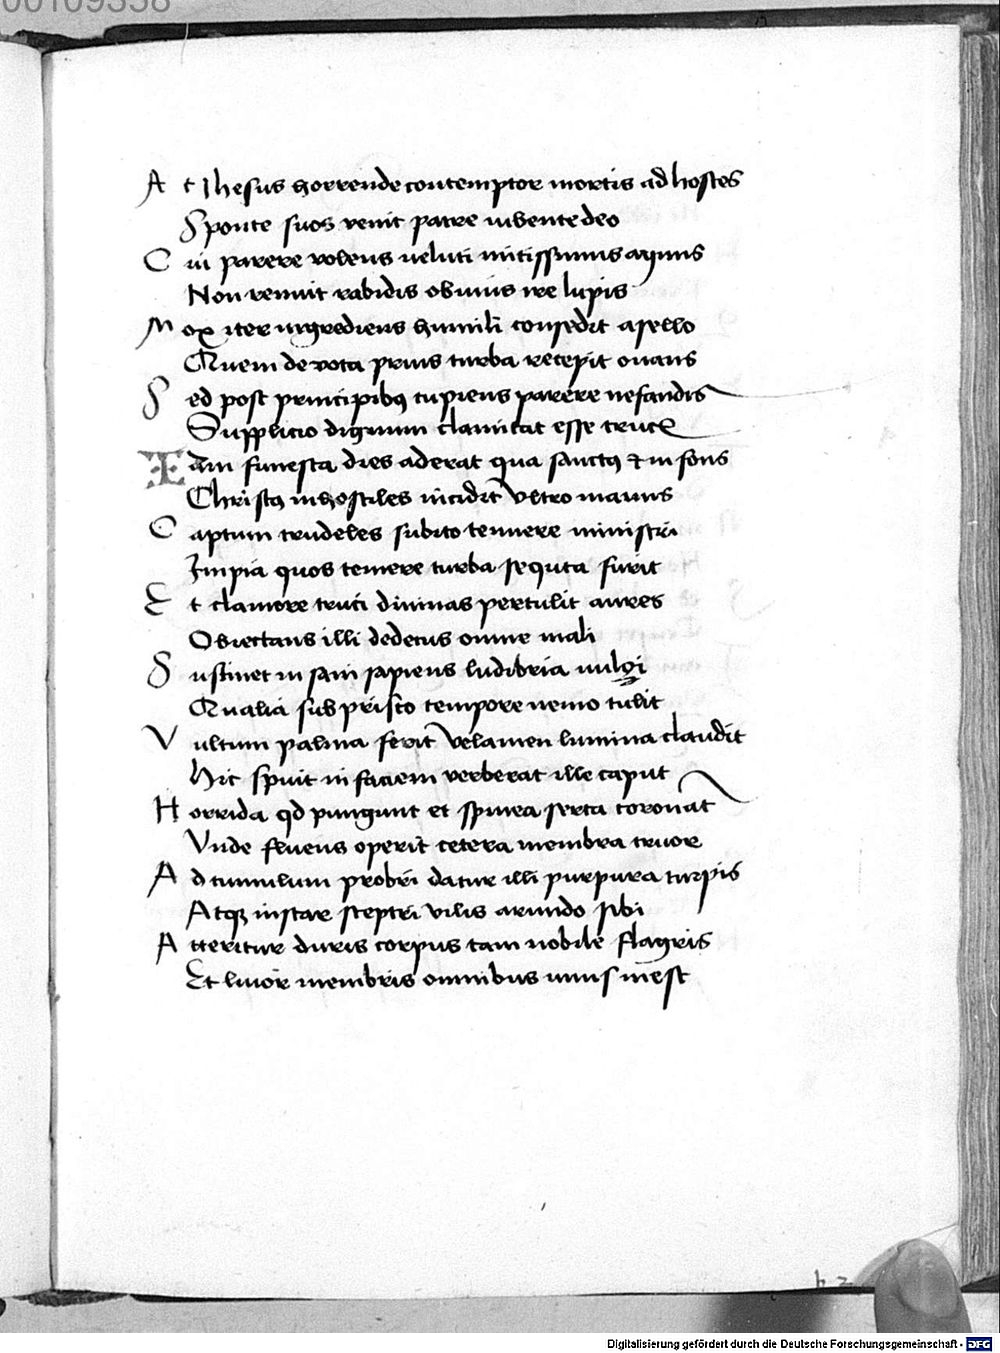 00109338
At Jhesus horrende contemptor mortis ad hostes
Sponte suos venit patre iubente deo
Cui parere volens veluti mitissimus agnus
Non rennuit rabidis obuius ire lupis
Mox iter ingrediens humili consedit asello
Quem devota prius turba recepit ouans
Sed post principibꝰ cupiens parere nefandis
Supplicio dignum clamitat esse truce
Iam funesta dies aderat qua sanctꝰ et insons
Christꝰ in hostiles incidit vltro manus
Captum crudeles subito tenuere ministri
Impia quos temere turba sequta furit
Et clamore truci diuinas pertulit aures
Obiectans illi dedecus omne mali
Sustinet insani sapiens ludibria vulgi
Qualia sub prisco tempore nemo tulit
Vultum palma ferit velamen lumina claudit
Hic spuit in faciem verberat ille caput
Horrida qd pungunt et spinea serta coronat
Vnde fluens operit cetera membra cruor
Ad cumulum probri datur illi purpura turpis
Atqꝫ instar sceptri vilis arundo sibi
Atteritur duris corpus tam nobile flagris
Et liuor membris omnibus vnus inest
h 2
Digitalisierung gefördert durch die Deutsche Forschungsgemeinschaft - DFG